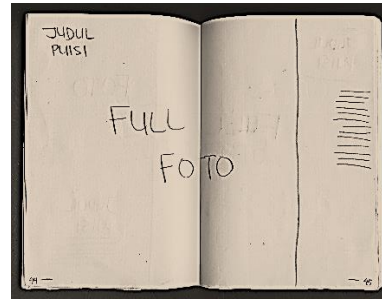 JUDUL
PUISI
FULL
FOTO
44 —
— 45